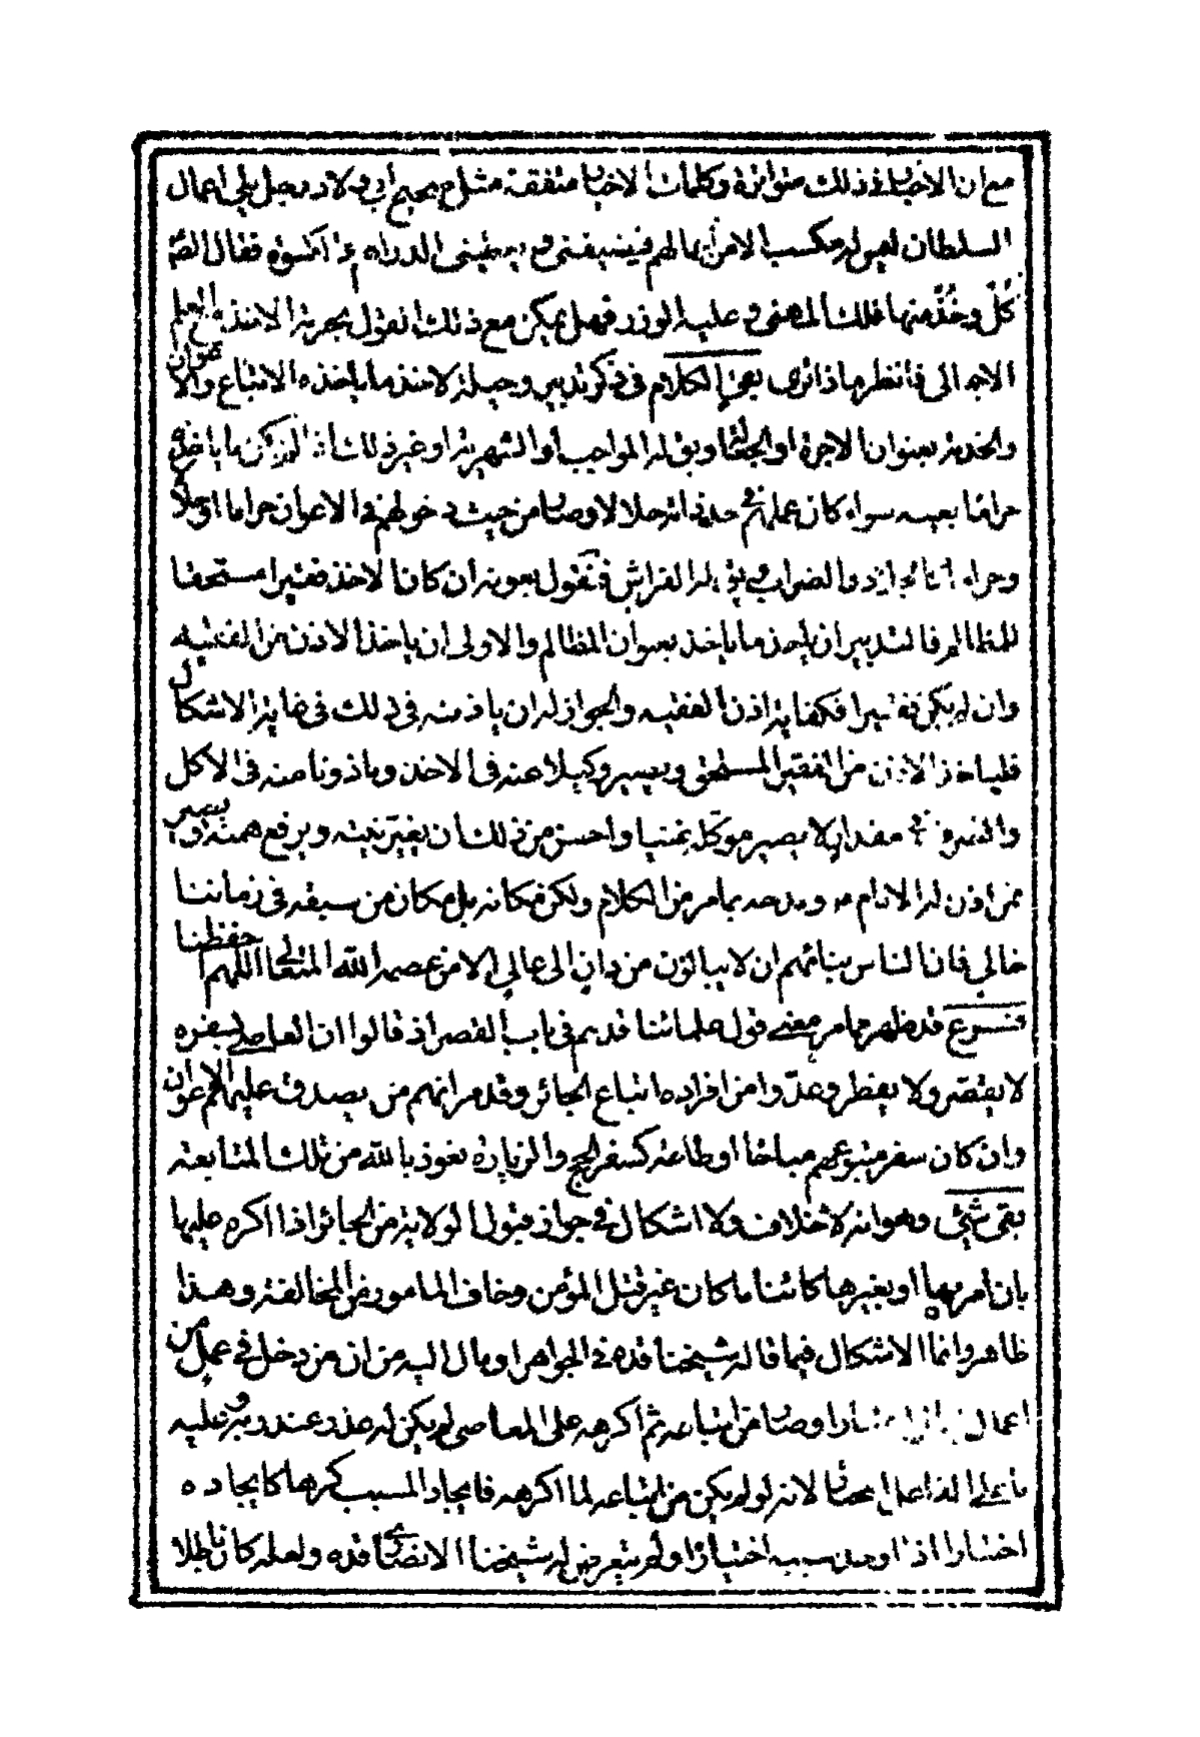 مع ان الاخبار فى ذلك متواترة وكلمات الاخيار متفقة مثل صحيح ابى ولاد رجل يلى اعمال
السلطان ليس له مكسب الا من اعمالهم فيضيفنى و يعطينى الدراهم و اكسوة فقال الص
كُلْ وخُذْ منها فلك المهنى و عليه الوزر فهل يمكن مع ذلك القول بحرمة الاخذ مع العلم
الاجمالى فانظر ماذا ترى بقى الكلام فى ذكر تدبير وحيلة لاخذ ما ياخذه الاتباع والاعوان
والخدمة بعنوان الاجرة او الجعل ويق له المواجب او الشهرية او غير ذلك اذا لم يكن ما ياخذه
حراما بعينه سواء كان عملهم فى حد ذاته حلالا وصار من حيث دخولهم فى الاعوان حراما او عملا
وحراما الضراب و يق له الفراش فنقول بعونه ان كان الاخذ فقيرا مستحقا
للمظالم فالتدبير ان ياخذ ما ياخذ بعنوان المظالم والاولى ان ياخذ الاذن من الفقيه
وان لم يكن فقيرا فكفاية اذن الفقيه والجواز له ان ياذنه فى ذلك فى غاية الاشكال
فلياخذ الاذن من الفقير المستحق ويصير وكيلا عنه فى الاخذ وماذونا منه فى الاكل
والتصرف فى مقدار لا يصير موكله غنيا واحسن من ذلك ان يغير نيته ويرفع همته ويصير
ممن اذن له الامام ع ومدحه بما مر من الكلام ولكن مكانه بل مكان من سبقه فى زماننا
خالى فان الناس بتمامهم ان لا يبالون من دانٍ الى عالى الا من عصمه الله المتعال اللهم احفظنا
فرع قد ظهر مما مر معنى قول علمائنا قدهم فى باب القصر اذ قالوا ان العاصى بسفره
لا يقصر ولا يفطر وعدّوا من افراده اتباع الجائر وقد مر انهم من يصدق عليهم الاعوان
وان كان سفر متبوعهم مباحا او طاعة كسفر الحج والزيارة نعوذ بالله من تلك المتابعة
بقى شئ وهو انه لا خلاف ولا اشكال فى جواز قبول الولاية من الجائر اذا اكره عليها
بان امر بها او بغيرها كائنا ما كان غير قتل المؤمن وخاف المامور من المخالفة وهذا
ظاهر وانما الاشكال فيما قاله شيخنا قده فى الجواهر ومال اليه من ان من دخل فى عمل من
اعمال اختيارا وصار من اتباعه ثم اكرهه على المعاصى لم يكن له عذر عند ربه وعليه
لانه لو لم يكن من اتباعه لما اكرهه فايجاد المسبب كرها كايجاده
اختيارا اذا اوجد سببه اختيارا ولم يتعرض له شيخنا الانصارى قده ولعله كان باطلا